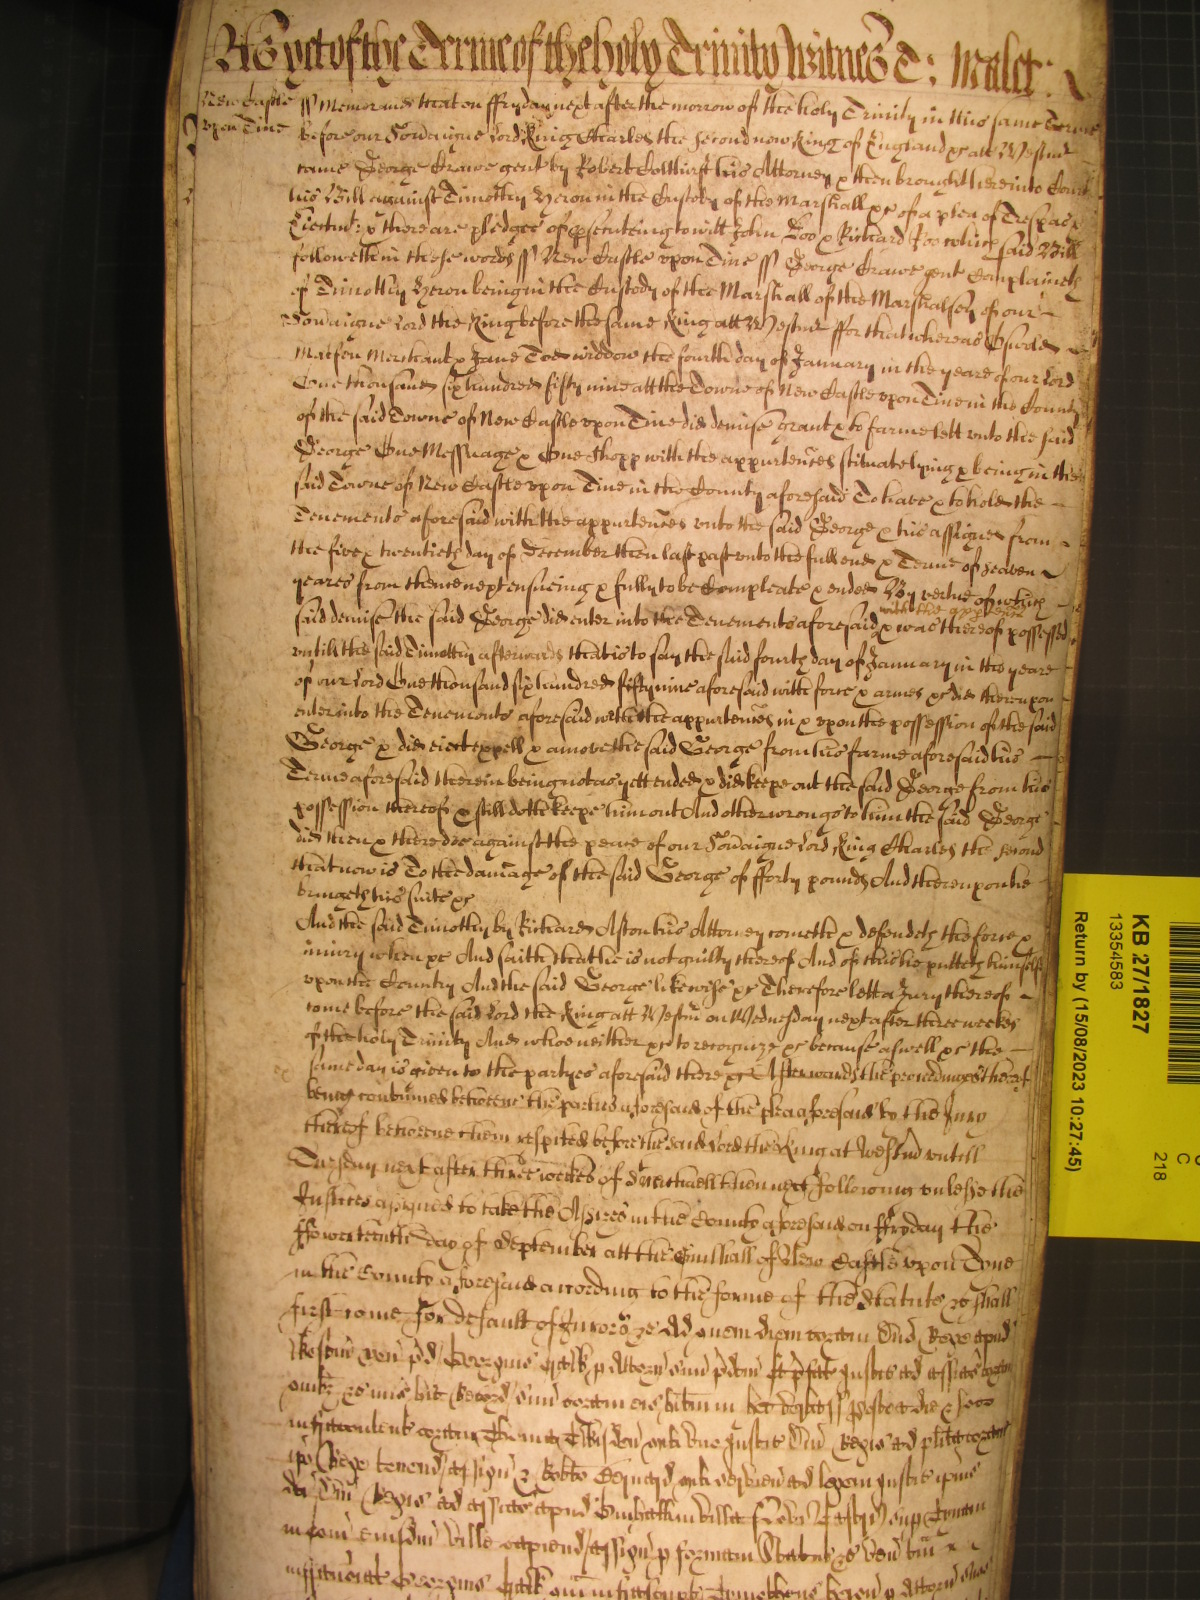 As yet of the Terme of the holy Trinity Witnes T: Malet:
New Castle upon Tine
ss Memorand that on ffryday next after the morrow of the holy Trinity in this same Terme
before our Soveraigne Lord King Charles the second now King of England &c att Westmr
came George Crawe gent by Robert his Attorney & then brought here into Court
his Bill against Timothy Heron in the Custody of the Marshall &c of a plea of Trespas &
Eiectmt: & there are pledges of prosecuteing to witt John Doo & Richard Roo which said Bill
followeth in these words ss New Castle upon Tine ss George Crawe gent Complaineth
of Timothy Heron being in the Custody of the Marshall of the Marshalsey of our
Soveraigne Lord the King before the same King att Westmr ffor that whereas Oswold
Matfen Merchant & Jane widdow the fourth day of January in the yeare of our Lord
One thousand six hundred fifty nine att the Towne of New Castle upon Tine in the County
of the said Towne of New Castle upon Tine did demise grant & to farme lett unto the said
George One Messuage & One Shopp with the appurtences scituate lying & being in the
said Towne of New Castle upon Tine in the County aforesaid To have & to hold the
Tenements aforesaid with the appurtences unto the said George & his assignes from
the five & twentieth day of December then last past unto the full end & Terme of seaven
yeares from thence next ensueing & fully to be Compleate & ended By vertue of which
said demise the said George did enter into the Tenements aforesaid with the appurtences & was thereof possessed
untill the said Timothy afterwards that is to say the said fourth day of January in the yeare
of our Lord One thousand six hundred fifty nine aforesaid with force & armes &c did thereupon
enter into the Tenements aforesaid with the appurtences in & upon the possession of the said
George & did eiect expell & amove the said George from his farme aforesaid his
Terme aforesaid therein being not as yett ended & did keepe out the said George from his
possession thereof & still doth keepe him out And other wrongs to him the said George
did then & there doe against the peace of our Soveraigne Lord King Charles the second
that now is To the damage of the said George of fforty pounds And thereupon he
bringeth his suite &c
And the said Timothy by Richard Aston his Attorney cometh & defendeth the force &
iniury when &c And saith that he is not guilty thereof And of this he putteth himselfe
upon the Country And the said George likewise &c Therefore lett a Jury thereof
come before the said Lord the King att Westmr on Wednesday next after three weekes
of the holy Trinity And who neither &c to recognize &c because aswell &c the
same day is given to the partyes aforesaid there &c Afterwards the proceedings thereof
being continued betweene the parties aforesaid of the plea aforesaid by the Jury
thereof betweene them respited before the said Lord the King at Westmr untill
Tuesday next after three weekes of St Michaell then next following unlesse the
Justices assigned to take the Assizes in the County aforesaid on ffryday the
ffowerteenth day of September att the Guilhall of New Castle upon Tyne
in the County aforesaid according to the forme of the Statute &c shall
first come for default of Jurors &c Ad quem diem coram Dno Rege apud
Westm ven pd Georgius p Attorn suu pdcm Et pfat Justic ad assias coram
quibz &c mis hic Record suu coram eis hitum in hec verba ss Postea die & loco
infracontent coram Thoma uno Justic Dni Regis ad plita coram
ipo Rege tenend assign & Robto ad legem Justic ipius
Dni Regis ad assias apud Guihald ville Novi Castri sup Tynam
in Com eiusdm ville capiend assign p formam Statut &c ven tam
infranoiat Georgius qam infrascript Timotheus Heron p Attorn suos
KB 27/1827
13354583
Return by (15/08/2023 10:27:45)
C
218